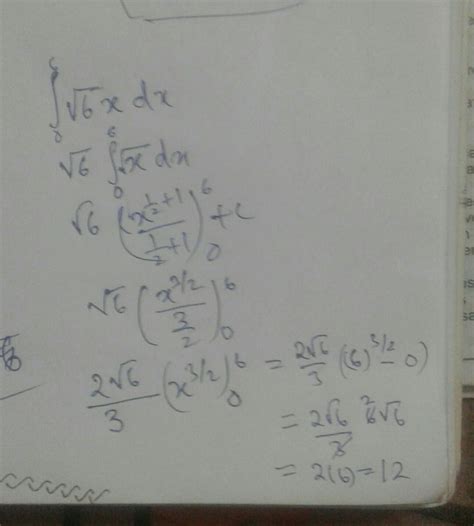 ∫₀⁶ √6x dx
√6 ∫₀⁶ √x dx
√6 (x^(1/2+1) / (1/2+1))₀⁶ + c
√6 (x^(3/2) / (3/2))₀⁶
2√6/3 (x^(3/2))₀⁶ = 2√6/3 (6)^(3/2) - 0)
= 2√6/3 6√6
= 2(6) = 12